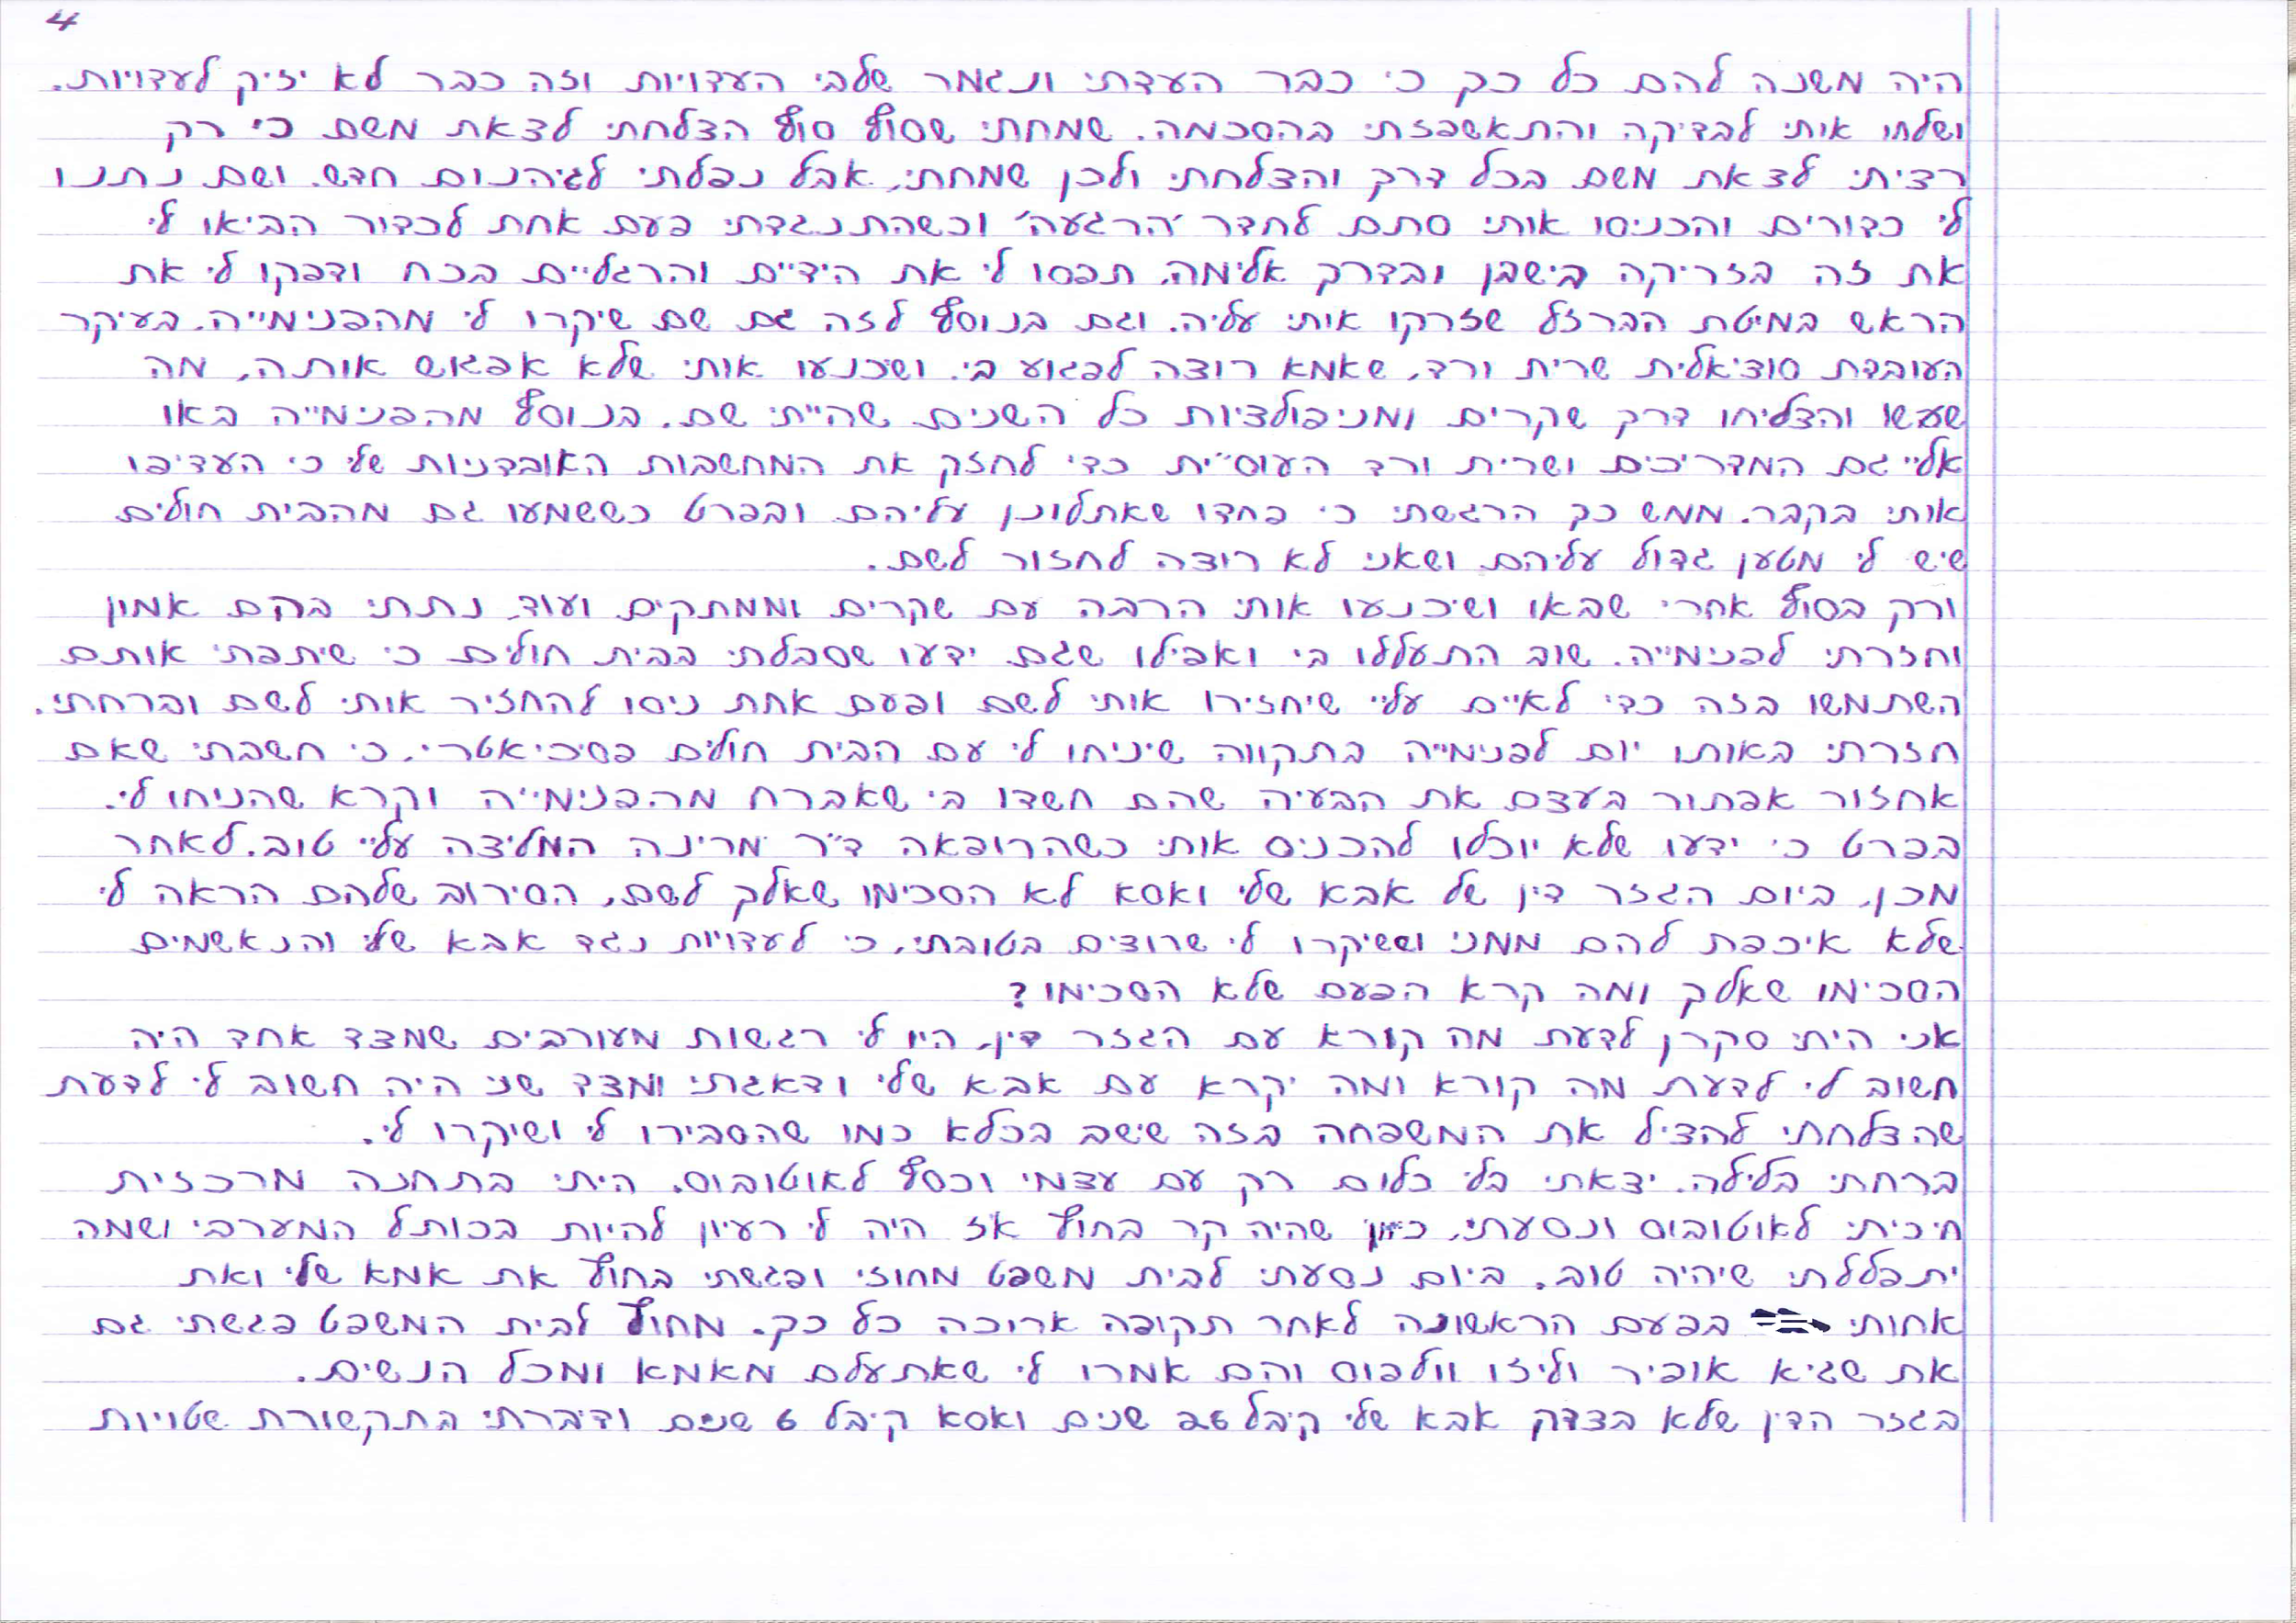 4
היה משנה להם כל כך כי כבר העדתי ונגמר שלבי העדויות וזה כבר לא יזיק לעדויות.
ושלחו אותי לבדיקה והתאשפזתי בהסכמה. שמחתי שסוף סוף הצלחתי לצאת משם כי רק
רציתי לצאת משם בכל דרך והצלחתי ולכן שמחתי, אבל נפלתי לגיהנום חדש. ושם נתנו
לי כדורים והכניסו אותי סתם לחדר 'הרגעה' וכשהתנגדתי פעם אחת לכדור הביאו לי
את זה בזריקה בישבן ובדרך אלימה, תפסו לי את הידיים והרגליים בכח ודפקו לי את
הראש במיטת הברזל שזרקו אותי עליה. וגם בנוסף לזה גם שם שיקרו לי מהפנימייה, בעיקר
העובדת סוציאלית שרית ורד, שאמא רוצה לפגוע בי. ושכנעו אותי שלא אפגוש אותה, מה
שעשו והצליחו דרך שקרים ומניפולציות כל השנים שהייתי שם. בנוסף מהפנימייה באו
אליי גם המדריכים ושרית ורד העוס"ית כדי לחזק את המחשבות האובדניות שלי כי העדיפו
אותי בקבר. ממש כך הרגשתי כי פחדו שאתלונן עליהם ובפרט כששמעו גם מהבית חולים
שיש לי מטען גדול עליהם ושאני לא רוצה לחזור לשם.
ורק בסוף אחרי שבאו ושיכנעו אותי הרבה עם שקרים וממתקים ועוד, נתתי בהם אמון
וחזרתי לפנימייה. שוב התעללו בי ואפילו שגם ידעו שסבלתי בבית חולים כי שיתפתי אותם
השתמשו בזה כדי לאיים עליי שיחזירו אותי לשם ופעם אחת ניסו להחזיר אותי לשם וברחתי.
חזרתי באותו יום לפנימייה בתקווה שיניחו לי עם הבית חולים פסיכיאטרי, כי חשבתי שאם
אחזור אפתור בעצם את הבעיה שהם חשדו בי שאברח מהפנימייה וקרא שהניחו לי.
בפרט כי ידעו שלא יוכלו להכניס אותי כשהרופאה ד"ר מרינה המליצה עליי טוב. לאחר
מכן, ביום הגזר דין של אבא שלי ואסא לא הסכימו שאלך לשם, הסירוב שלהם הראה לי
שלא איכפת להם ממני וששיקרו לי שרוצים בטובתי, כי לעדויות נגד אבא שלי והנאשמים
הסכימו שאלך ומה קרא הפעם שלא הסכימו?
אני היתי סקרן לדעת מה קורא עם הגזר דין, היו לי רגשות מעורבים שמצד אחד היה
חשוב לי לדעת מה קורא ומה יקרא עם אבא שלי ודאגתי ומצד שני היה חשוב לי לדעת
שהצלחתי להציל את המשפחה בזה שישב בכלא כמו שהסבירו לי ושיקרו לי.
ברחתי בלילה. יצאתי בלי כלום רק עם עצמי וכסף לאוטובוס. היתי בתחנה מרכזית
חיכיתי לאוטובוס ונסעתי, שהיה קר בחוץ אז היה לי רעיון להיות בכותל המערבי ושמה
יתפללתי שיהיה טוב. ביום נסעתי לבית משפט מחוזי ופגשתי בחוץ את אמא שלי ואת
אחותי בפעם הראשונה לאחר תקופה ארוכה כל כך. מחוץ לבית המשפט פגשתי גם
את שגיא אופיר וליזו וולפוס והם אמרו לי שאתעלם מאמא ומכל הנשים.
בגזר הדין שלא בצדק אבא שלי קיבל 26 שנים ואסא קיבל 6 שנים ודיברתי בתקשורת שטויות